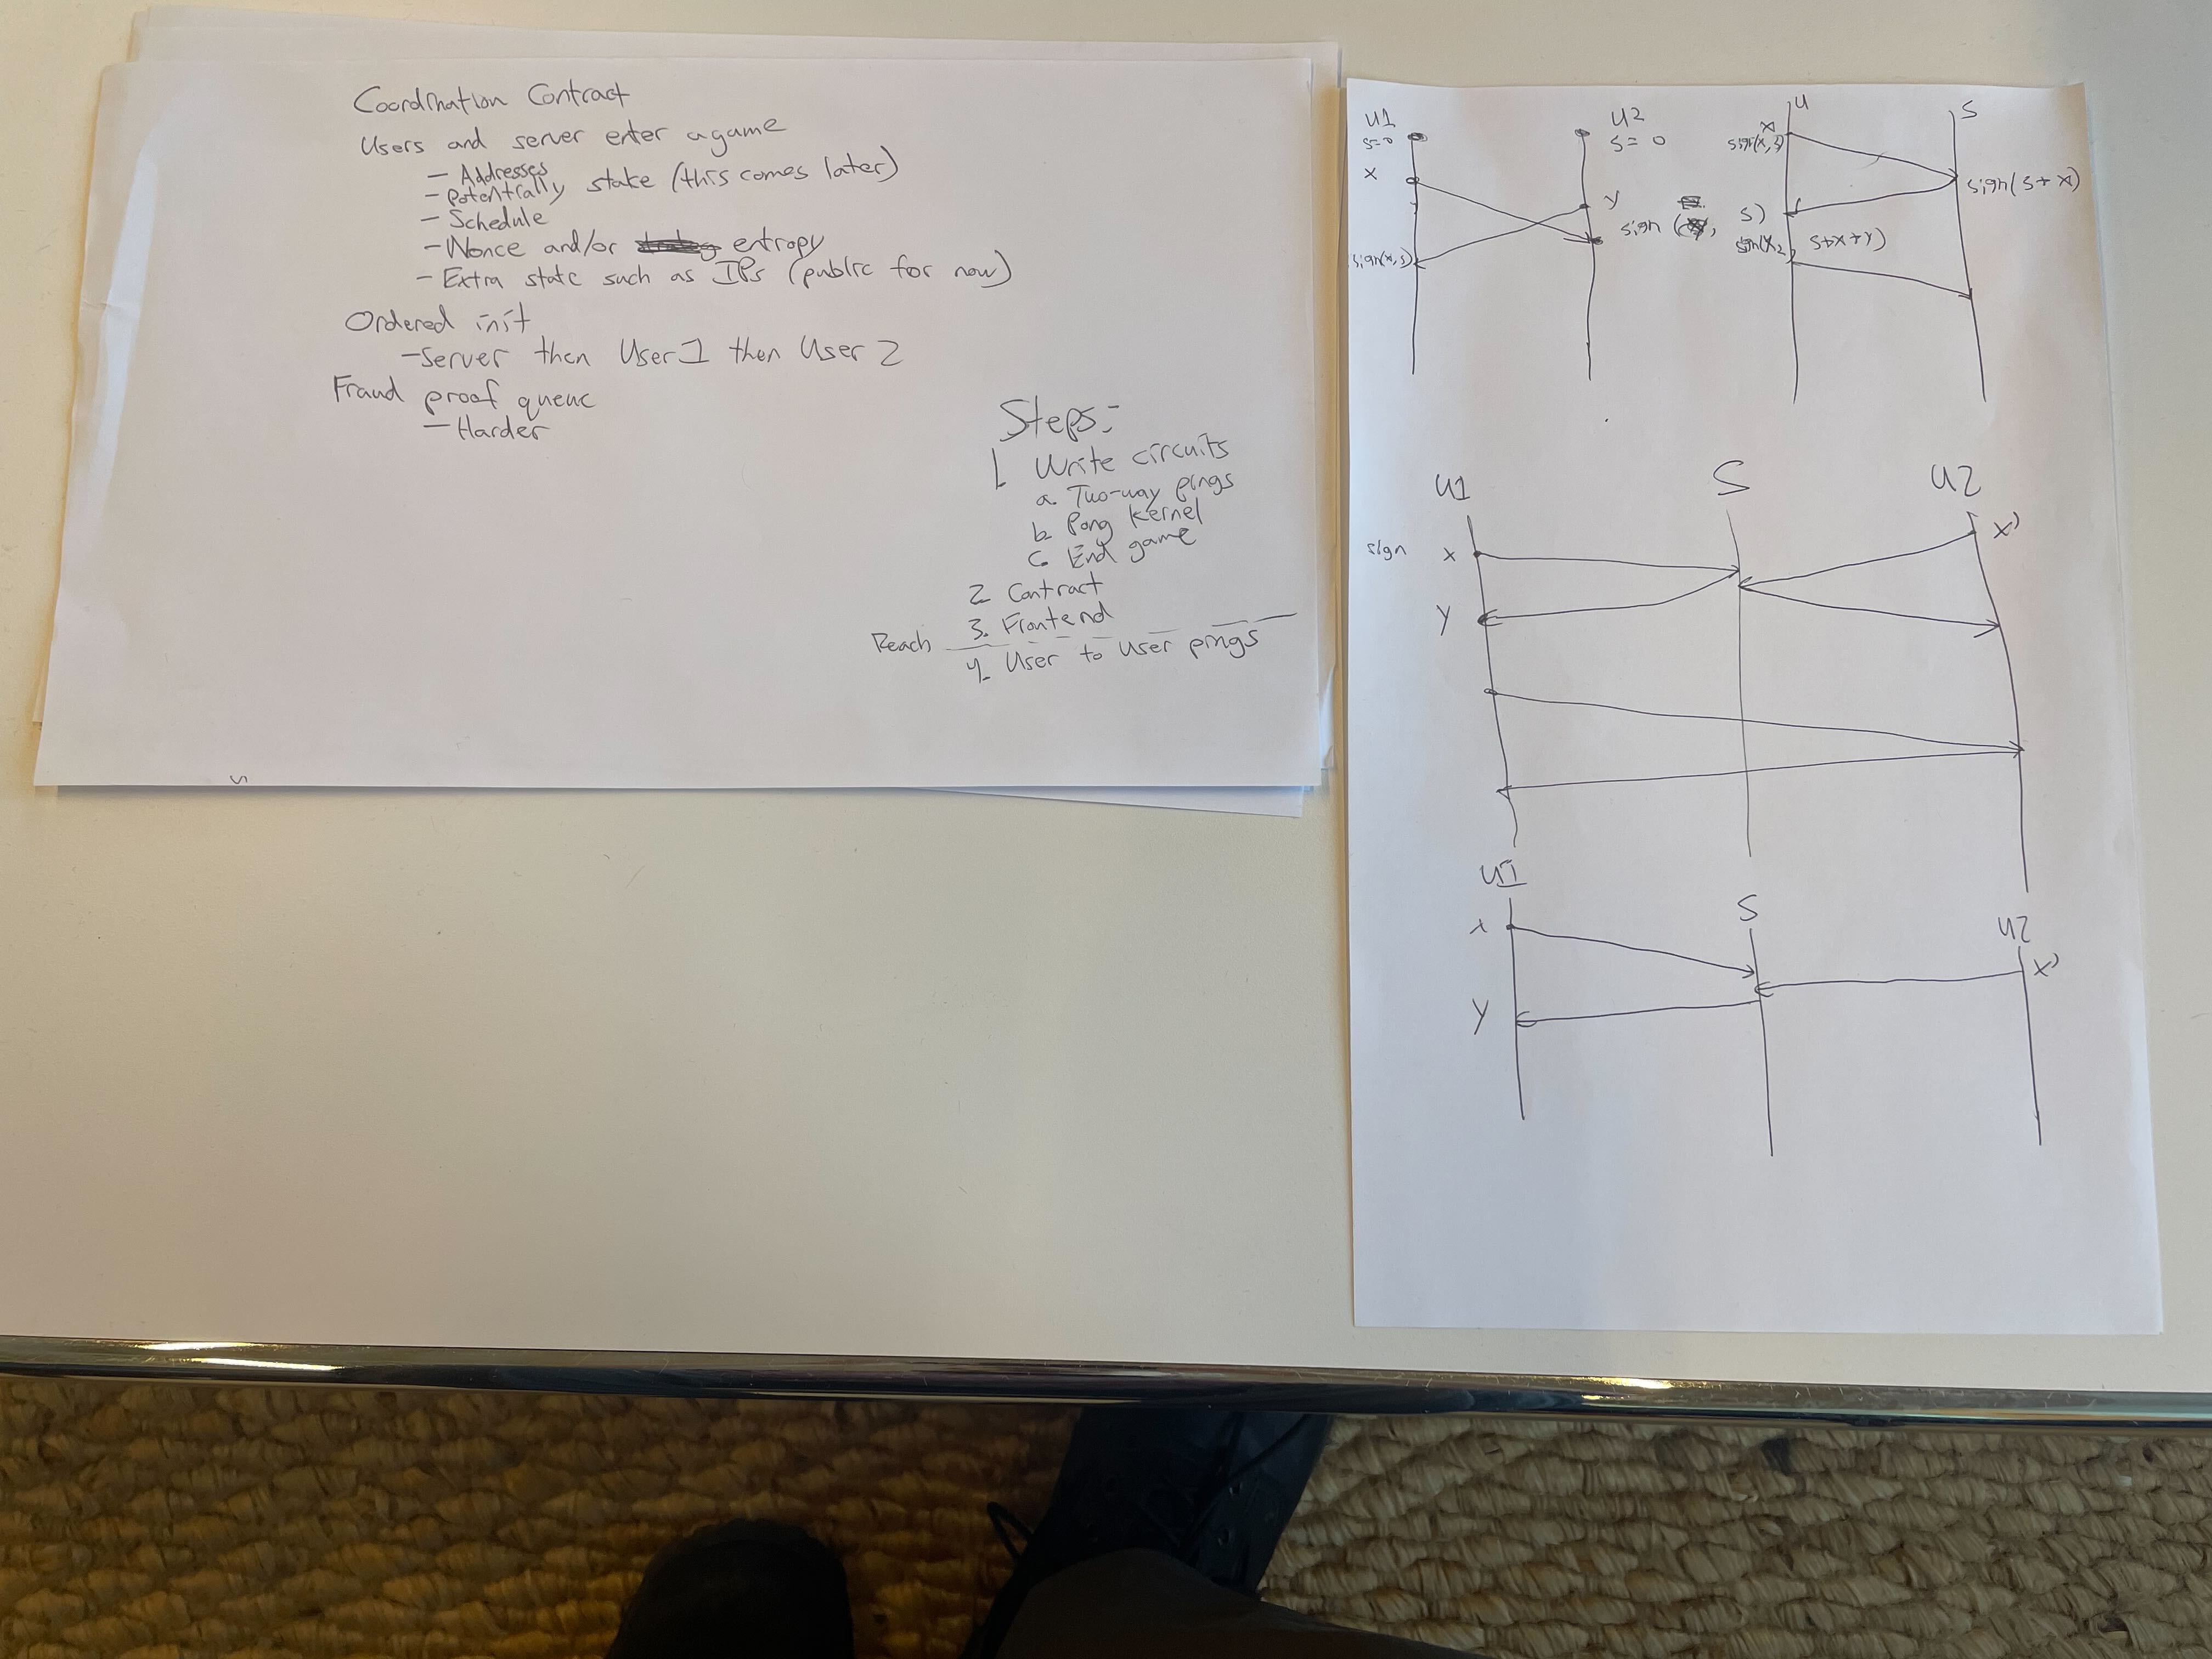 Coordination Contract
Users and server enter a game
- Addresses
- potentially stake (this comes later)
- Schedule
- Nonce and/or entropy
- Extra state such as IPs (public for now)
Ordered init
- Server then User 1 then User 2
Fraud proof queue
- Harder
Steps:
1. Write circuits
a. Two-way pings
b. Pong kernel
c. End game
2. Contract
3. Frontend
Reach
4. User to user pings
U1
s=0
x
sign(x,s)
U2
s=0
y
sign ( , s)
U
x
sign(x,s)
sign(x2, s+x+y)
S
sign(s+x)
U1
S
U2
sign x
x'
y
U1
S
U2
x
x'
y